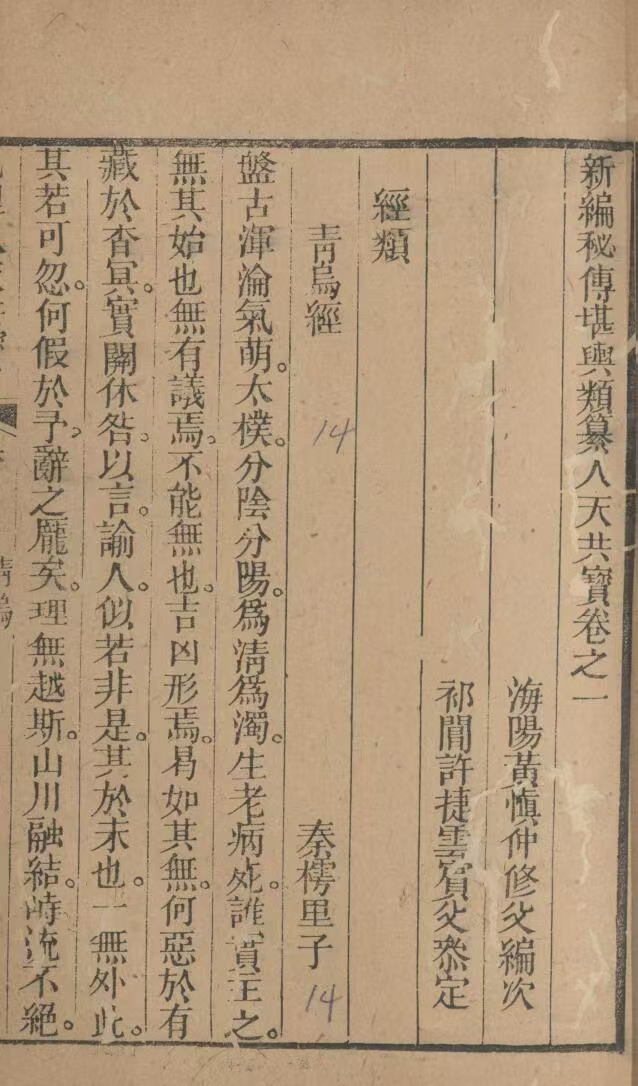 新編秘傳堪輿類纂人天共寶卷之一
海陽黃慎仲修父編次
祁閶許捷雲賓父叅定
經類
青烏經 14
秦樗里子 14
盤古渾淪氣萌。太樸。分陰分陽。爲清爲濁。生老病死。誰實主之。
無其始也無有議焉。不能無也。吉凶形焉。曷如其無。何惡於有
藏於杳冥。實關休咎。以言。諭人。似若非是。其於末也。一無外此。
其若可忽。何假於予。辭之龎矣。理無越斯。山川融結。峙流不絕。